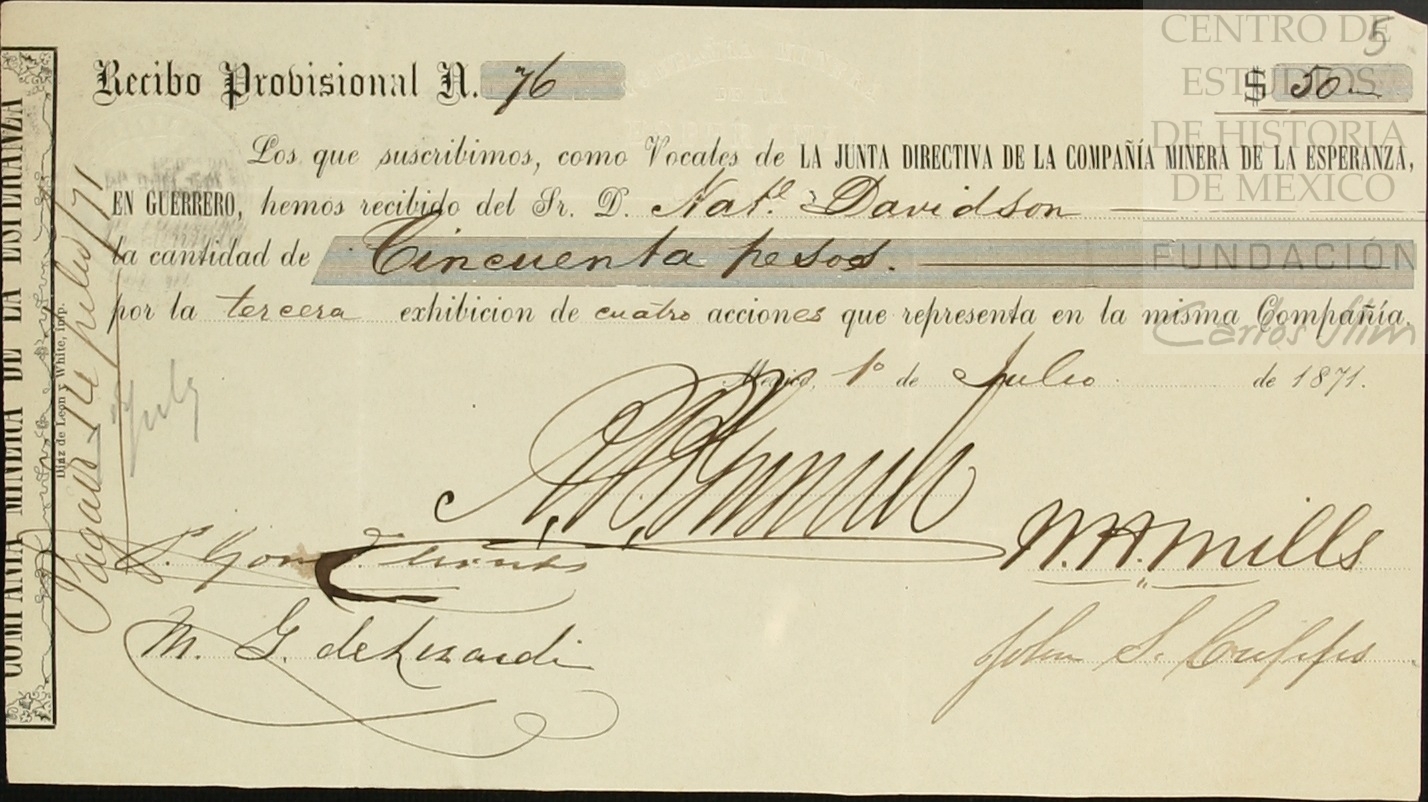 5
Recibo Provisional N. 76 $ 50
Los que suscribimos, como Vocales de LA JUNTA DIRECTIVA DE LA COMPAÑÍA MINERA DE LA ESPERANZA,
EN GUERRERO, hemos recibido del Sr. D. Nat.l Davidson
la cantidad de Cincuenta pesos.
por la tercera exhibicion de cuatro acciones que representa en la misma Compañía.
Mexico, 1º de Julio de 1871.
N. H. Mills
M. G. de Lizardi
John S. Cripps
COMPAÑIA MINERA DE LA ESPERANZA
Diaz de Leon y White, imp.
14 julio/71
July
CENTRO DE
ESTUDIOS
DE HISTORIA
DE MEXICO
FUNDACIÓN
Carlos Slim